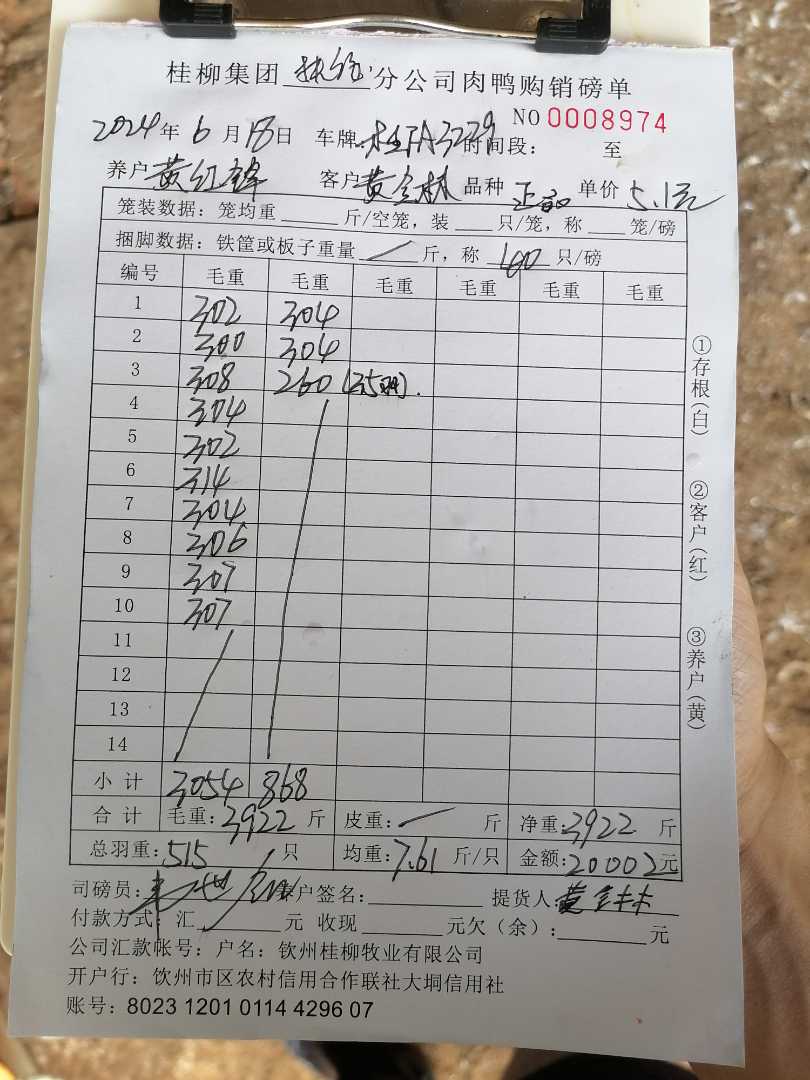 桂柳集团 分公司肉鸭购销磅单
NO 0008974
2024年6月18日 车牌: 3229 时间段: 至
养户 黄红锋 客户 黄金林 品种 正品 单价 5.1元
笼装数据: 笼均重____斤/空笼, 装___只/笼, 称___笼/磅
捆脚数据: 铁筐或板子重量 / 斤, 称 40 只/磅
编号 毛重 毛重 毛重 毛重 毛重 毛重
1 302 304
2 300 304
3 308 260 (35羽).
4 304
5 302
6 314
7 304
8 306
9 307
10 307
11
12
13
14
小计 3054 868
合计 毛重: 3922 斤 皮重: / 斤 净重: 3922 斤
总羽重: 515 只 均重: 7.61 斤/只 金额: 20002元
司磅员: 客户签名:____ 提货人: 黄金林
付款方式: 汇____元 收现____元欠(余):____元
公司汇款帐号: 户名: 钦州桂柳牧业有限公司
开户行: 钦州市区农村信用合作联社大垌信用社
账号: 8023 1201 0114 4296 07
①存根(白)
②客户(红)
③养户(黄)